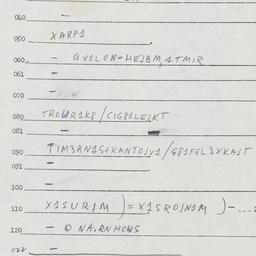 040 –
050 XARP1
060 – QV1LON-HEJBM,1TMIR
061 –
070 –
080 TROWR1K8/CIG81LEJKT
081 –
090 TIM3RN1S+KANTOJV1/G81FEL3XKAJT
091 –
100 –
110 X1SURJM )=X1SROJN1M )-....
120 – @ NA.RNHOWS